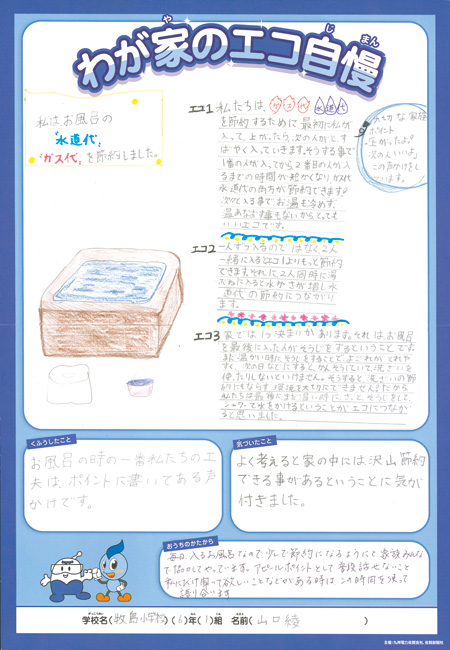 わが家のエコ自慢
や
じまん
私はお風呂の
"水道代"
"ガス代"を節約しました。
エコ1 私たちは、ガス代 水道代
を節約するために最初に私が
入って、上がったら次の人がとす
ばやく入っていきます。そうする事で
1番の人が入ってから2番目の人が入
るまでの時間が短かくなりガス代
水道代の両方が節約できます。
次々に入る事でお湯も冷めず、
温めなおす事もないからとっても
いいエコです。
大切な家族
ポイント
上がったよ。
次の人いいよ。
この声かけをして
います。
エコ2 一人ずつ入るのではなく2人
一緒に入るとエコ1よりもっと節約
できます。それに、2人同時に湯
ぶねに入ると水かさが増し水
道代の節約につながり
ます。
エコ3 家では1つ決まりがあります。それは、お風呂
を最後に入った人がそうじをするということです。
まだ温かい時に、そうじをすることで、よごれがとれやす
く、次の日などにすると、かんそうしていて、洗ざいを
使ったりしないといけません。そうすると、洗ざいの節
約にもならず、環境を大切にできません。だから
私たちは最後に、まだ温い時に、さっと、そうじをして、
シャワーで水をかけるということがエコにつながる
と思いました。
くふうしたこと
お風呂の時の一番私たちの工
夫は、ポイントに書いてある声
かけです。
気づいたこと
よく考えると家の中には沢山節約
できる事があるということに気が
付きました。
おうちのかたから
毎日、入るお風呂なので少しで節約になるようにと家族みんな
で協力してやっています。アピールポイントとして普段話せないこと
私にだけ聞いて欲しいことなどがある時は この時間を使って
語り合います
がっこうめい ねん くみ なまえ
学校名(牧島小学校)(6)年(1)組 名前(山口綾)
主催:九州電力佐賀支社、佐賀新聞社